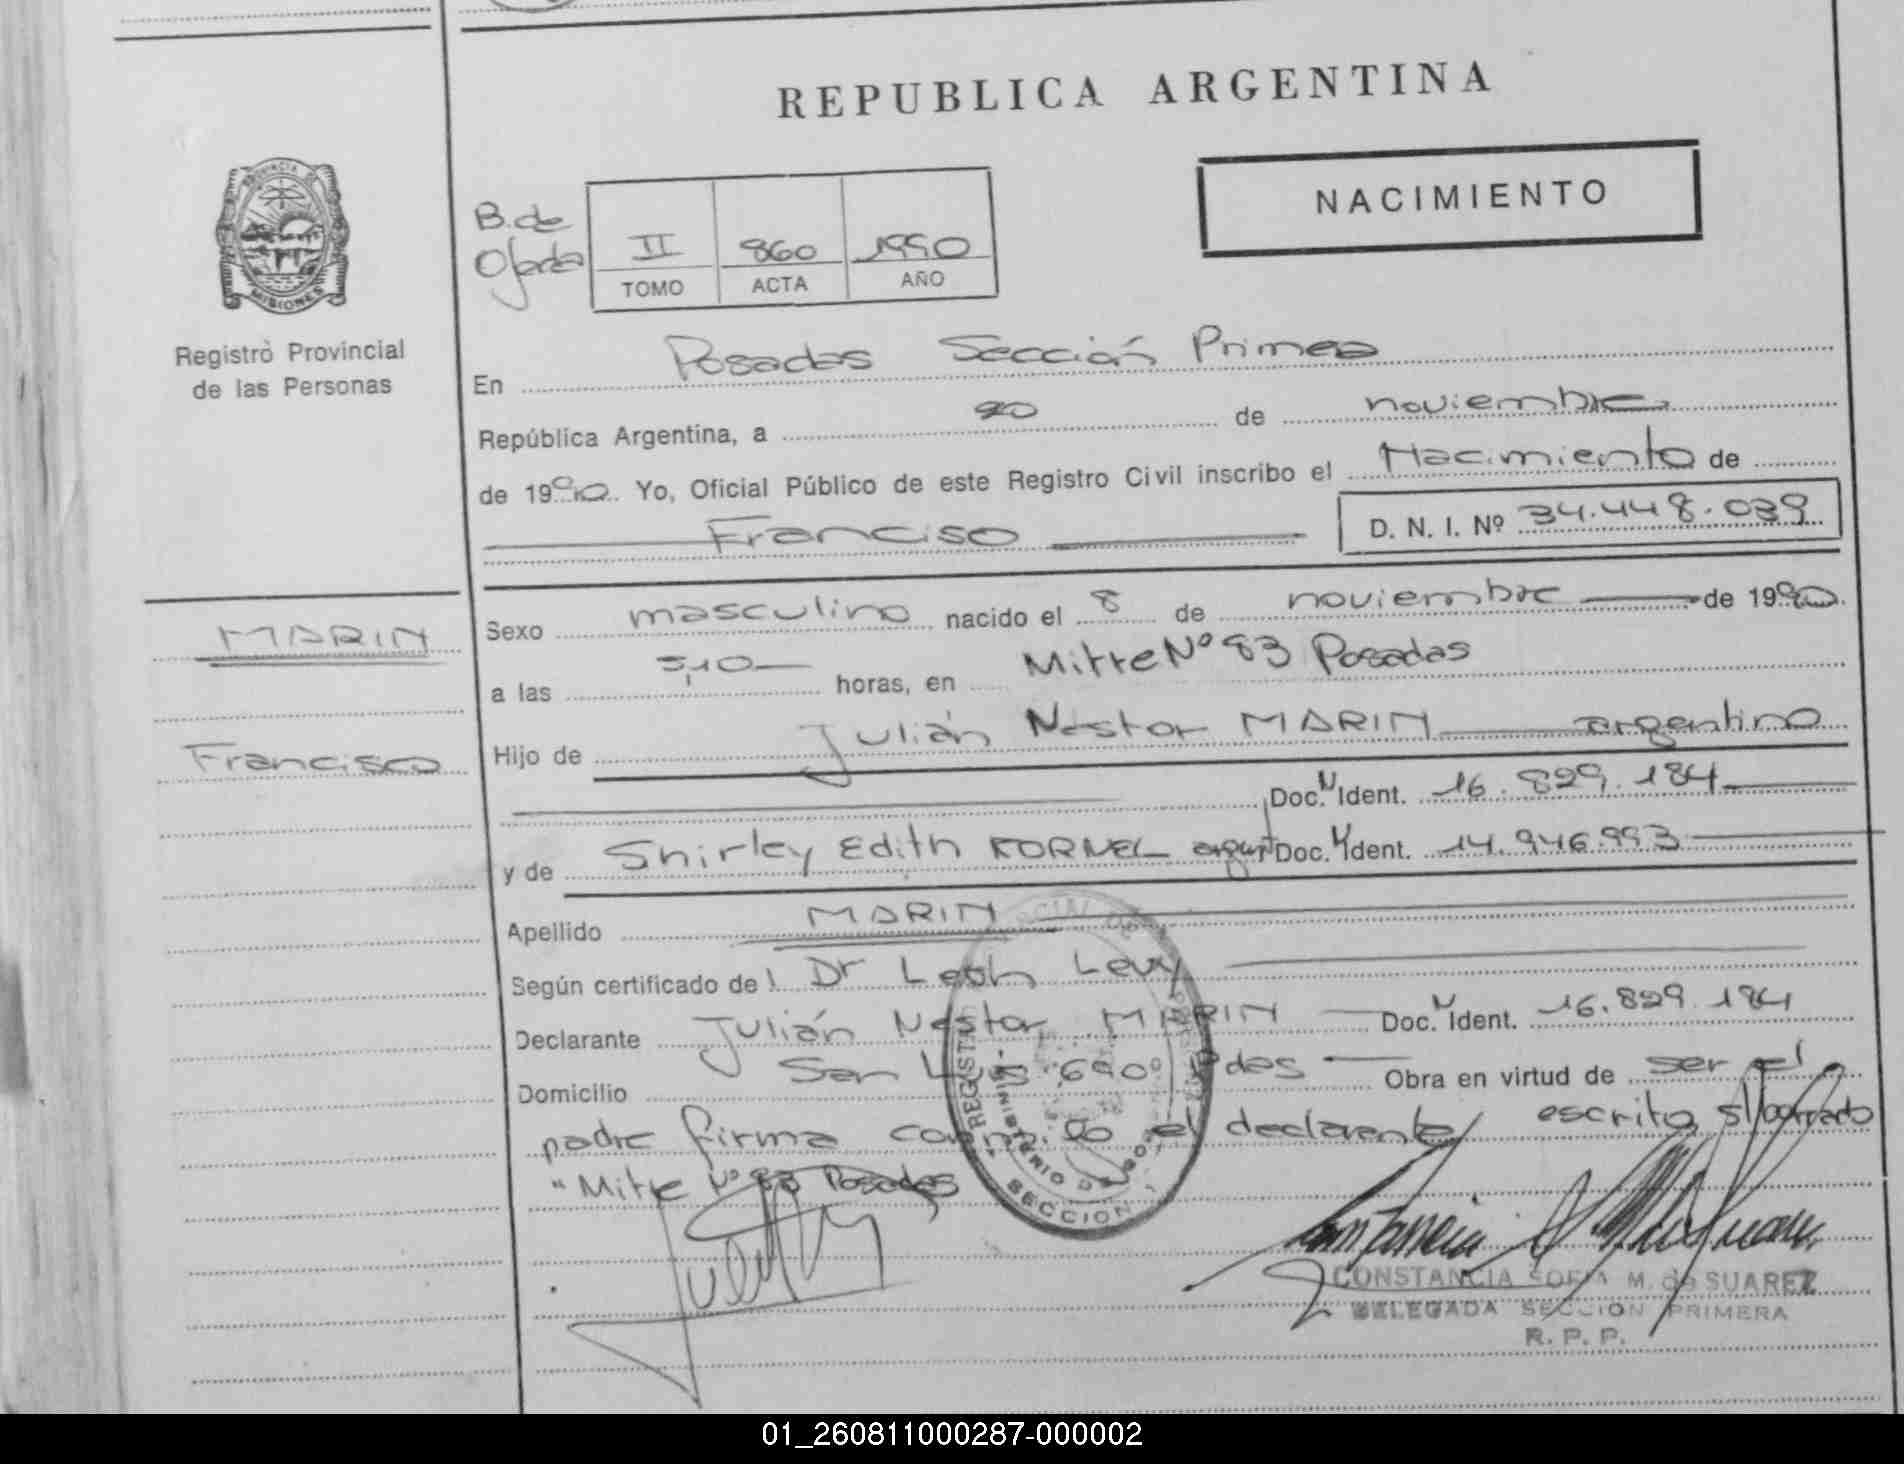 REPUBLICA ARGENTINA
NACIMIENTO
PROVINCIA DE
MISIONES
Registro Provincial
de las Personas
B. de
II 860 1990
TOMO ACTA AÑO
En Posadas Sección Primera
República Argentina, a 20 de noviembre
de 1990. Yo, Oficial Público de este Registro Civil inscribo el Nacimiento de
Franciso D. N. I. Nº 34.448.039
MARIN
Francisco
Sexo masculino nacido el 8 de noviembre de 1990
a las 5,10 horas, en Mitre Nº 83 Posadas
Hijo de Julián Nestor MARIN argentino
Doc. N Ident. 16.829.184
y de Shirley Edith KORNEL argent Doc. N Ident. 14.946.993
Apellido MARIN
Según certificado de l Dr León Levy
Declarante Julián Nestor MARIN Doc. N Ident. 16.829.184
Domicilio San Luis 690 Pdas Obra en virtud de ser el
padre firma conmigo el declarante escrito s/borrado
"Mitre Nº 83 Posadas
REGISTRO PROVINCIAL DE
MINISTERIO DE GOB
SECCION 1
CONSTANCIA SOFIA M. de SUAREZ
DELEGADA SECCION PRIMERA
R. P. P.
01_260811000287-000002